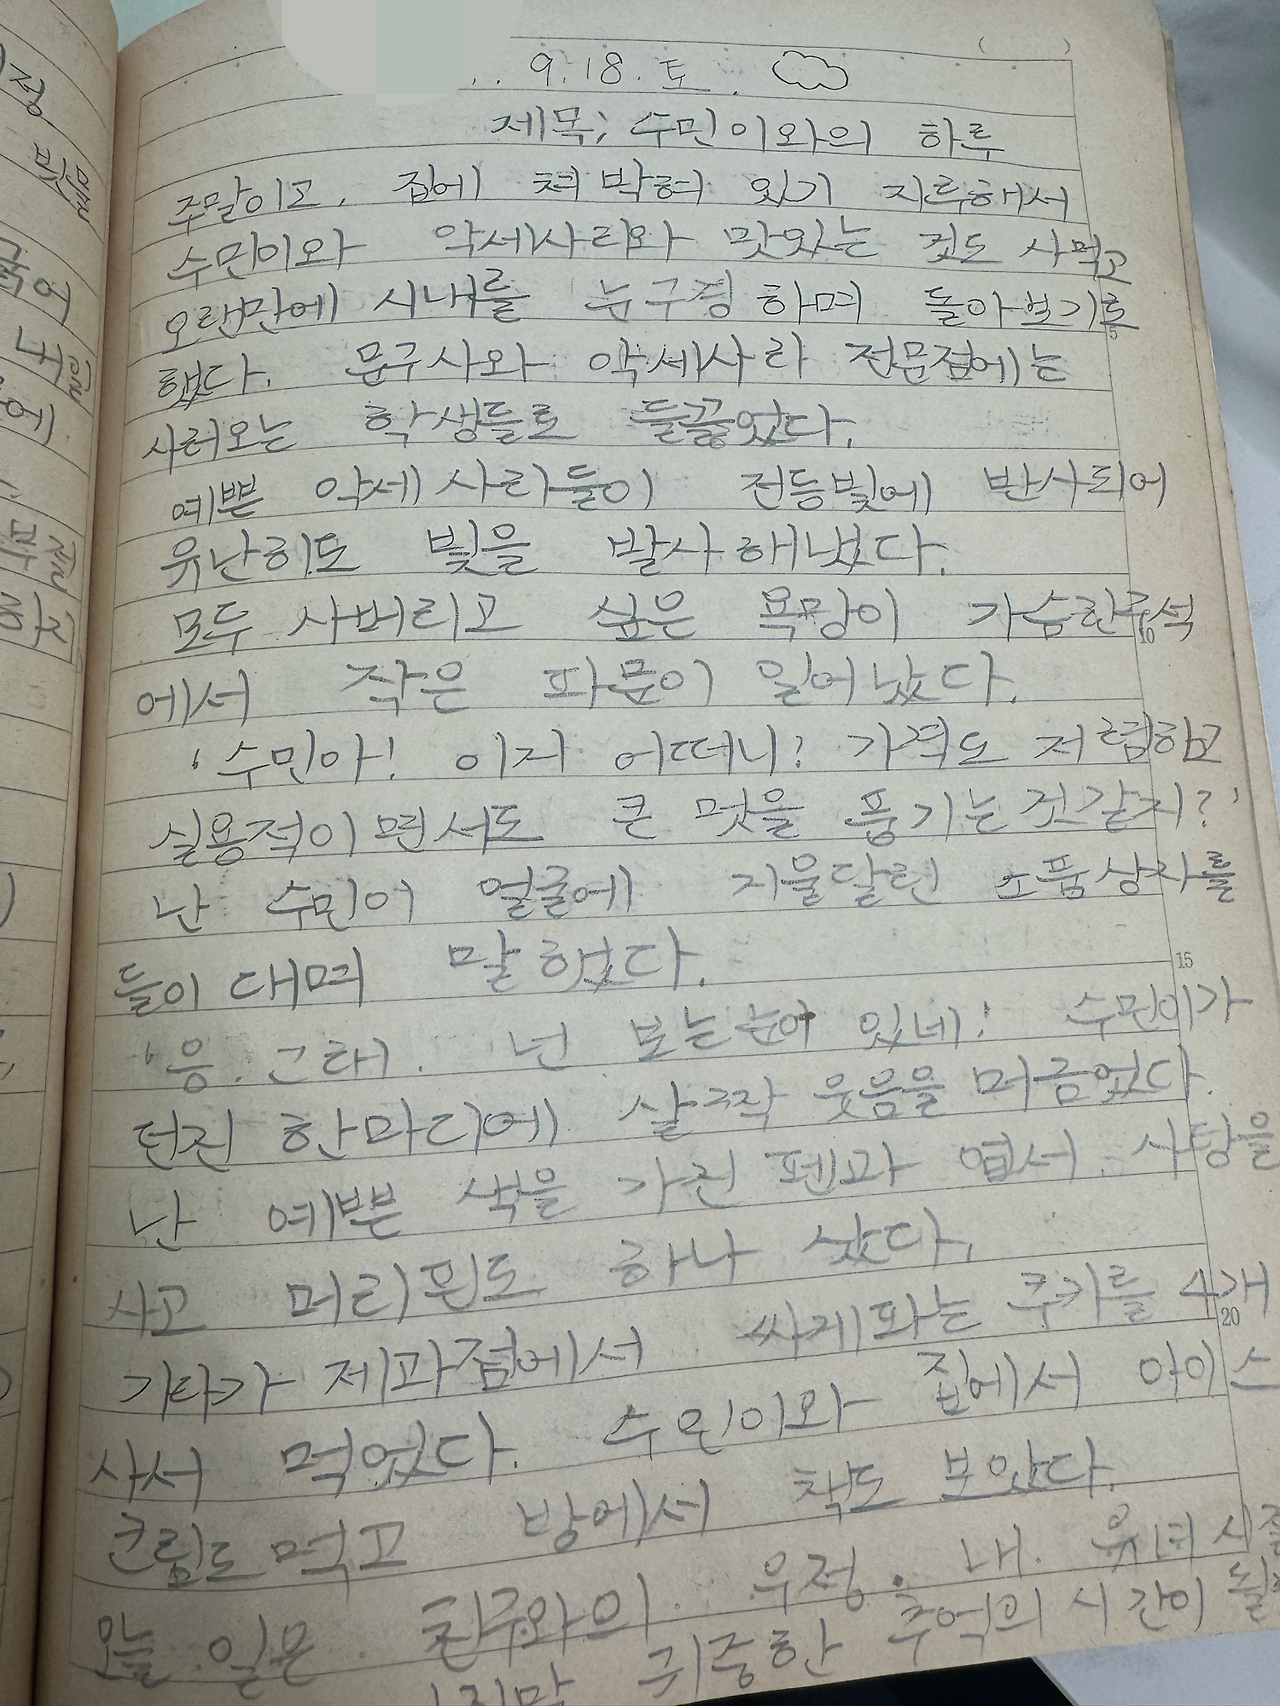 9. 18. 토.
제목; 수민이와의 하루
주말이고, 집에 쳐 박혀 있기 지루해서
수민이와 악세사리와 맛있는 것도 사먹고
오랜만에 시내를 눈구경하며 돌아보기로
했다. 문구사와 악세사리 전문점에는
사러오는 학생들로 들끓었다.
예쁜 악세사리들이 전등빛에 반사되어
유난히도 빛을 발사해냈다.
모두 사버리고 싶은 욕망이 가슴한구석
에서 작은 파문이 일어났다.
'수민아! 이거 어떠니? 가격도 저렴하고
실용적이면서도 큰 멋을 풍기는것같지?'
난 수민이 얼굴에 거울달린 소품상자를
들이대며 말했다.
'응. 그래. 넌 보는눈이 있네! 수민이가
던진 한마디에 살짝 웃음을 머금었다.
난 예쁜 색을 가진 펜과 엽서, 사탕을
사고 머리핀도 하나 샀다.
가다가 제과점에서 싸게파는 쿠키를 4개
사서 먹었다. 수민이와 집에서 아이스
크림도 먹고 방에서 책도 보았다.
오늘 일은 친구와의 우정. 내 유녀시절
귀중한 추억의 시간이
5
10
15
20